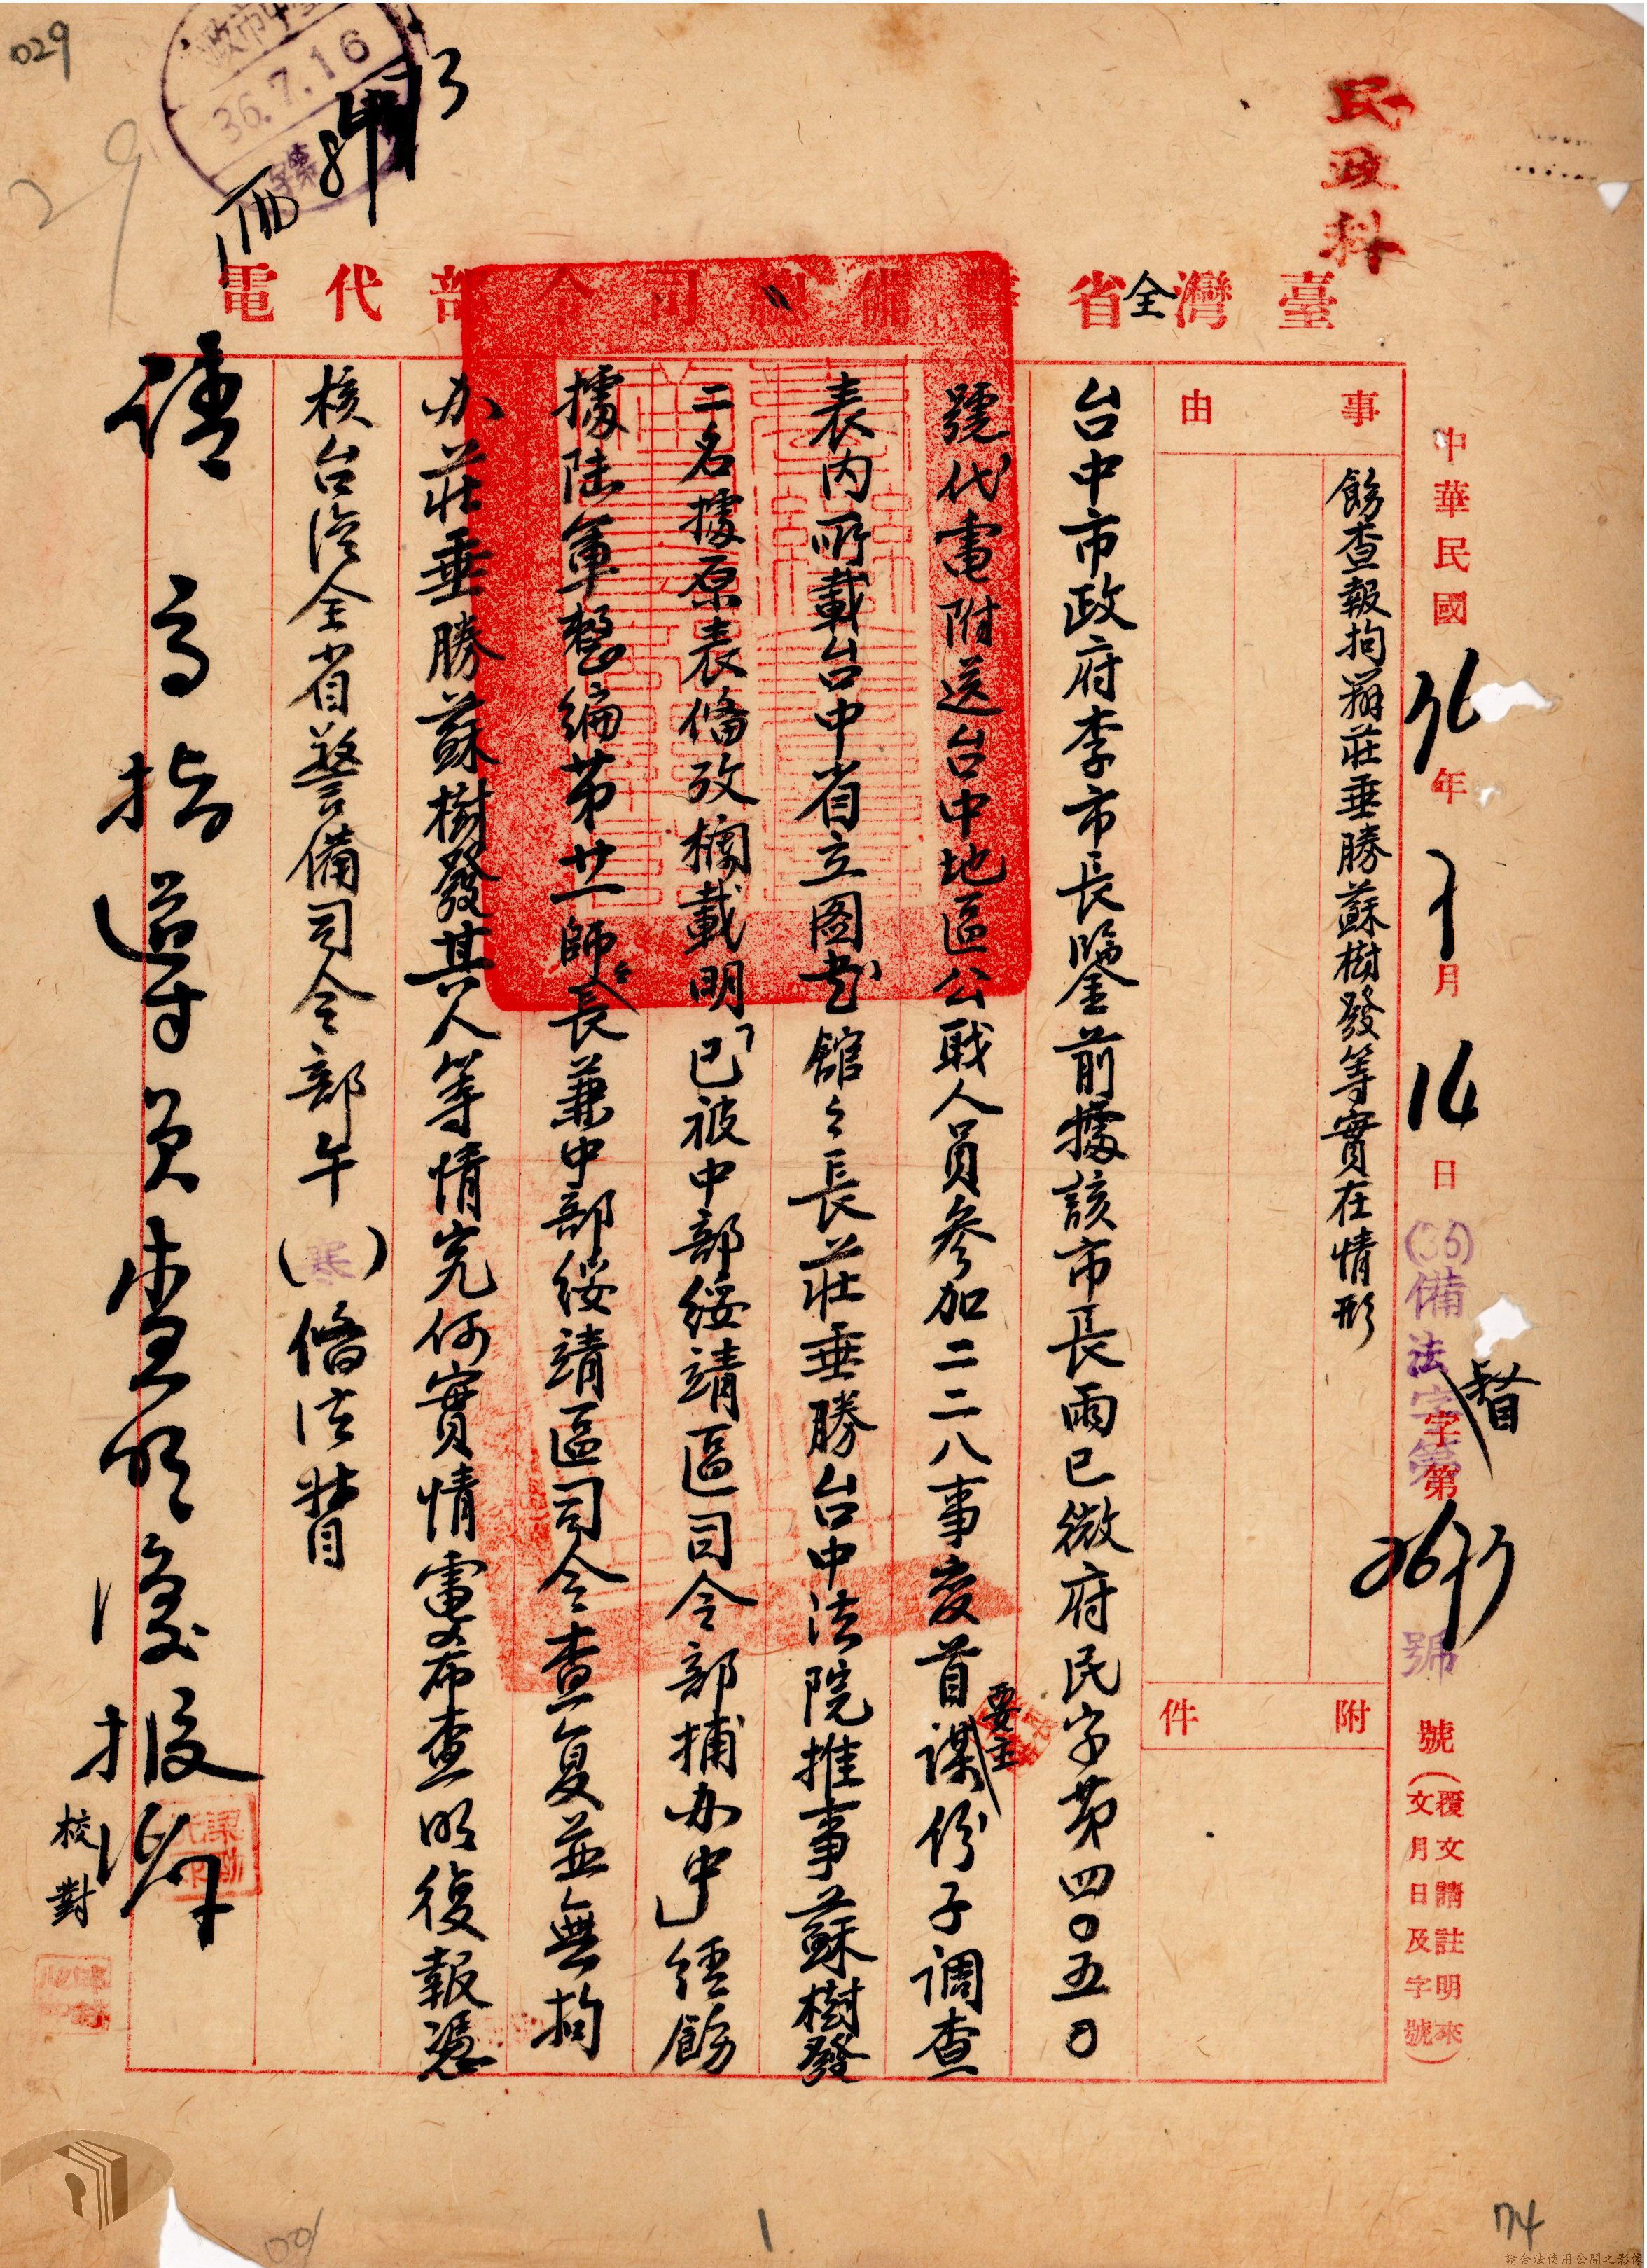 029
29
36.7.16
民政科
臺灣全省警備總司令部代電
中華民國36年7月14日
(36)備法字第
督
號
號(覆文請註明來文月日及字號)
事由
飭查報拘辦莊垂勝蘇樹發等實在情形
附件
台中市政府李市長鑒前據該市長雨已微府民字第四〇五〇
號代電附送台中地區公職人員參加二二八事变首謀份子調查
要主
表内所載台中省立图书館之長莊垂勝台中法院推事蘇樹發
二名據原表俻攷欄載明「已被中部綏靖區司令部捕办中」經飭
據陸軍整編第廿一師長兼中部綏靖區司令查复並無拘
办莊垂勝蘇樹發其人等情究何實情電希查明復報憑
核台湾全省警備司令部午(寒)俻法督
指導員查明
報
校對
1
74
請合法使用公開之影像